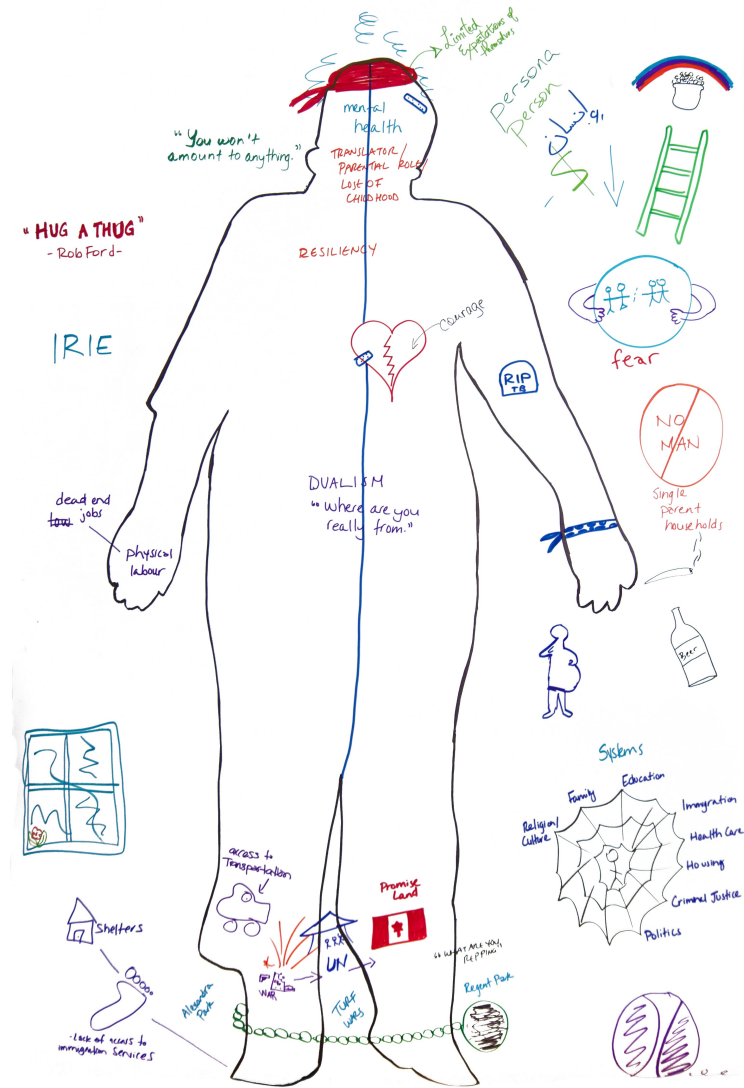 Limited
Expectations of
themselves
persona
person
انسان
$
mental
health
"You won't
amount to anything."
TRANSLATOR/
PARENTAL ROLE/
LOST OF
CHILDHOOD
"HUG A THUG"
- Rob Ford -
RESILIENCY
courage
IRIE
fear
RIP
TB
NO
MAN
Single
parent
households
DUALISM
"Where are you
really from."
dead end
low jobs
physical
labour
Beer
Systems
Education
Family
Immigration
Religion/
Culture
Health Care
Housing
Criminal Justice
Politics
access to
Transportation
Promise
Land
Shelters
UN
WAR
"WHAT ARE YOU
REPPING
Alexandra
Park
TURF
WARS
Regent Park
-Lack of access to
immigration services